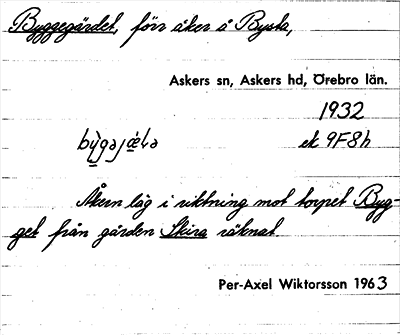 Byggegärdet, förr åker å Bysta,
Askers sn, Askers hd, Örebro län.
1932
ek 9F8h
Åkern låg i riktning mot torpet Byg-
get från gården Skira räknat
Per-Axel Wiktorsson 1963